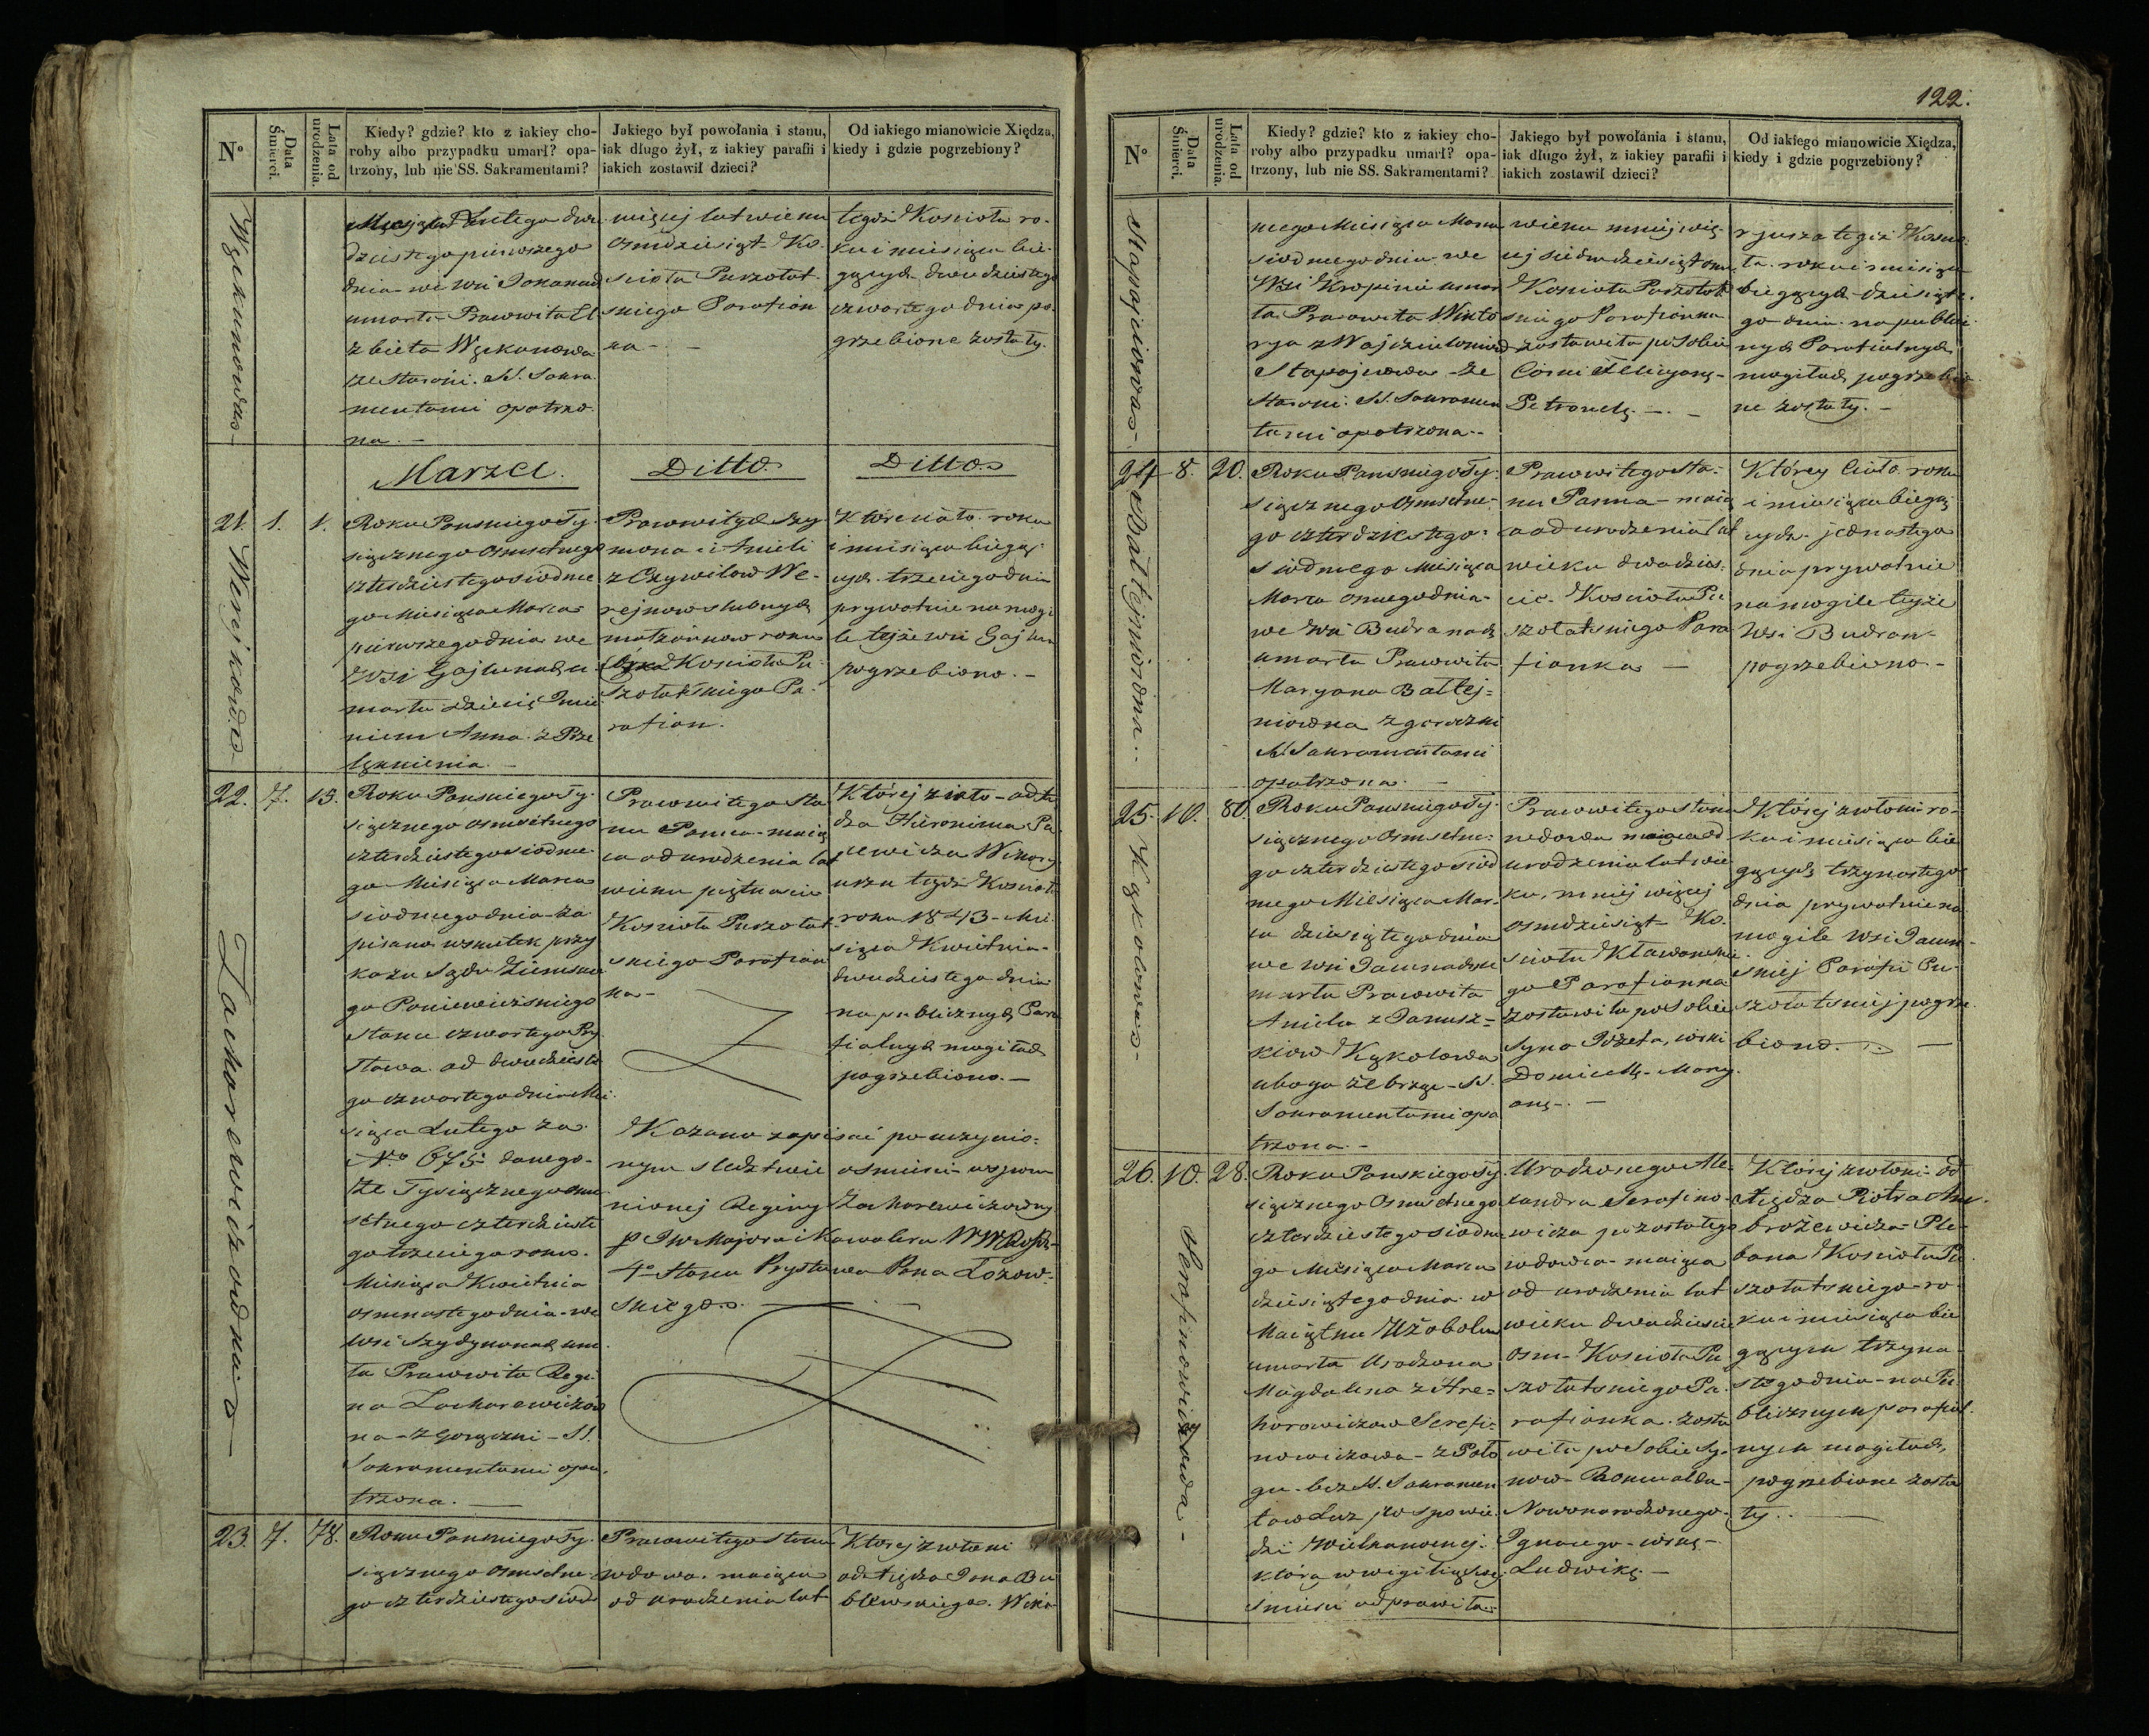 N°
Data Śmierci.
Lata od urodzenia.
Kiedy? gdzie? kto z iakiey cho-
roby albo przypadku umarł? opa-
trzony, lub nie SS. Sakramentami?
Jakiego był powołania i stanu,
iak długo żył, z iakiey parafii i
iakich zostawił dzieci?
Od iakiego mianowicie Xiędza,
kiedy i gdzie pogrzebiony?
Lutego dwu
dziestego pierwszego
dnia we wsi
umarła Prawowita El
zbieta
ze starości. SS. Sakra
mentami opatrzo
na. —
więcej lat wieku
osmdziesiąt Ko
scioła Puszołat
skiego Parafian
ka —
tegoż Kościoła ro-
ku i miesiąca bie-
gących dwudziestego
czwartego dnia po-
grzebione zostały.
Marzec.
Ditto.
Ditto.
21.
1.
1.
Werejkowna
Roku Pańskiego Ty-
siącznego Osmsetnego
czterdziestego siodme
go Miesiąca Marca
pierwszego dnia we
Wsi Gajlunach u
marła dziecię Imie
niem Anna z Prze
lęknienia. —
Prawowitych Szy
mona i Anieli
małżonków
Kościoła Pu
szołatskiego Pa-
rafian.
Którę ciało roku
i miesiąca biegą
cych trzeciego dnia
prywatnie na mogi
le tejże wsi Gajlun
pogrzebiono. —
22.
7.
15.
Zacharewiczowna
Roku Pańskiego Ty-
siącznego Osmsetnego
czterdziestego siodme
go Miesiąca Marca
siodmego dnia za
pisano wskutek przy
kazu Sądu Ziemskie
go Poniewieżskiego
Stanu czwartego Pry
stawa od dwudzieste
go czwartego dnia Mie
siąca Lutego za
N° 675 danego
że Tysiącznego osm
setnego czterdzieste
go trzeciego roku
Miesiąca Kwietnia
osmnastego dnia we
wsi Szydykonach um
ła Prawowita Regi
na Zacharewiczów
na z Gorączki SS.
Sakramentami opa
trzona. —
Prawowitego Sta
nu Panna maią
ca od urodzenia lat
wieku piętnaście
Kościoła Puszołat
skiego Parafian
ka —
Której ciało od Xię
dza Hieronima Pa
cewicza Wikary
usza tegoż Kościoła
roku 1843 Mie
siąca Kwietnia
dwudziestego dnia
na publicznych Para
fialnych mogiłach
pogrzebiono. —
Kazano zapisać po uczynio-
nym śledztwie o śmierci wspom
nionej Reginy Zacharewiczowny
Majora i Kawalera
4° Stanu Prystawa Pana Łozow-
skiego.
23.
7.
78.
Roku Pańskiego Ty-
siącznego Osmsetne-
go czterdziestego siod-
Prawowitego Stanu
wdowa maiąca
od urodzenia lat
Której zwłoki
od Xiędza Jana Bu
blewskiego Wika
122.
N°
Data Śmierci.
Lata od urodzenia.
Kiedy? gdzie? kto z iakiey cho-
roby albo przypadku umarł? opa-
trzony, lub nie SS. Sakramentami?
Jakiego był powołania i stanu,
iak długo żył, z iakiey parafii i
iakich zostawił dzieci?
Od iakiego mianowicie Xiędza,
kiedy i gdzie pogrzebiony?
Stapajewowa
mego Miesiąca Marca
siodmego dnia we
Wsi Kropinie umar
ła Prawowita Wikto
rya z
Stapajewowa ze
Starości. SS. Sakramen
tami opatrzona. -
wieku mniej wię-
cej siedmdziesiąt osm
Kościoła Puszołat
skiego Parafianka
zostawiła po sobie
Corki Felicyannę
Petronelę. —
ryusza tegoż Koscio
ła roku i miesiąca
biegących dziesiąte
go dnia na publicz
nych Parafialnych
mogiłach pogrzebio
ne zostały. —
24
8.
20.
Baltejniowna
Roku Pańskiego Ty-
siącznego Osmsetne-
go czterdziestego
siodmego Miesiąca
Marca osmego dnia
we Wsi Budranach
umarła Prawowita
Maryana Baltej-
niowna z gorączki
SS. Sakramentami
opatrzona. —
Prawowitego Sta-
nu Panna maią
ca od urodzenia lat
wieku dwadzieś-
cie. Kościoła Pu
szołatskiego Para
fianka —
Którey ciało roku
i miesiąca biegą
cych jednastego
dnia prywatnie
na mogile tejże
Wsi Budran
pogrzebiono. —
25.
10.
80.
Kąkolowa
Roku Pańskiego Ty-
siącznego Osmsetne-
go czterdziestego siod
mego Miesiąca Mar-
ca dziesiątego dnia
we wsi
marła Prawowita
Aniela z Janusz-
kiow Kąkolowa
uboga żebrząca SS.
Sakramentami opa
trzona. —
Prawowitego stanu
wdowa maiąca od
urodzenia lat wie
ku, mniej więcej
osmdziesiąt Ko-
scioła Kławańskie
go Parafianka
zostawiła po sobie
Syna Józefa, córki
Domicellę Mary
annę —
Której zwłoki ro-
ku i miesiąca bie
gących trzynastego
dnia prywatnie na
mogile wsi
Parafii Pu-
szołatskiej pogrze
biono. —
26.
10.
28.
Serafinowiczowa
Roku Pańskiego Ty
siącznego Osmsetnego
czterdziestego siodme
go Miesiąca Marca
dziesiątego dnia w
Maiątku Użobolu
umarła Urodzona
Magdalena z Hre-
horowiczow Serafi-
nowiczowa z Poło
gu bez SS. Sakramen
tow lecz po spowie
dzi Wielkanocnej
którą w wigilią swej
śmierci odprawiła.
Urodzonego Ale-
xandra Serafino-
wicza pozostałego
wdowca maiąca
od urodzenia lat
wieku dwadzieście
osm Kościoła Pu
szołatskiego Pa-
rafianka zosta
wiła po sobie Sy-
now Romualda
Nowonarodzonego
Ignacego córkę
Ludwikę —
Której zwłoki od
Xiędza Piotra Am-
brożewicza Ple-
bana Kościoła Pu
szołatskiego ro
ku i miesiąca bie
gącym trzyna
stego dnia na Pu-
blicznych parafial
nych mogiłach
pogrzebione zosta
ły. —